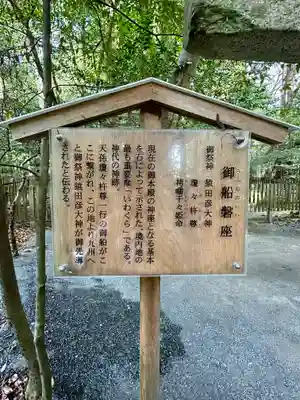 御船磐座
御祭神 猿田彦大神
瓊々杵尊
栲幡千々姫命
現在の御本殿の神座となる基本
を石によって示された、境内地の
最も重要な「いわくら」である。
神代の神跡。
天孫瓊々杵尊一行の御船がこ
こに繋がれ、この地より九州へ
と御祭神猿田彦大神が御先導
されたと伝わる。